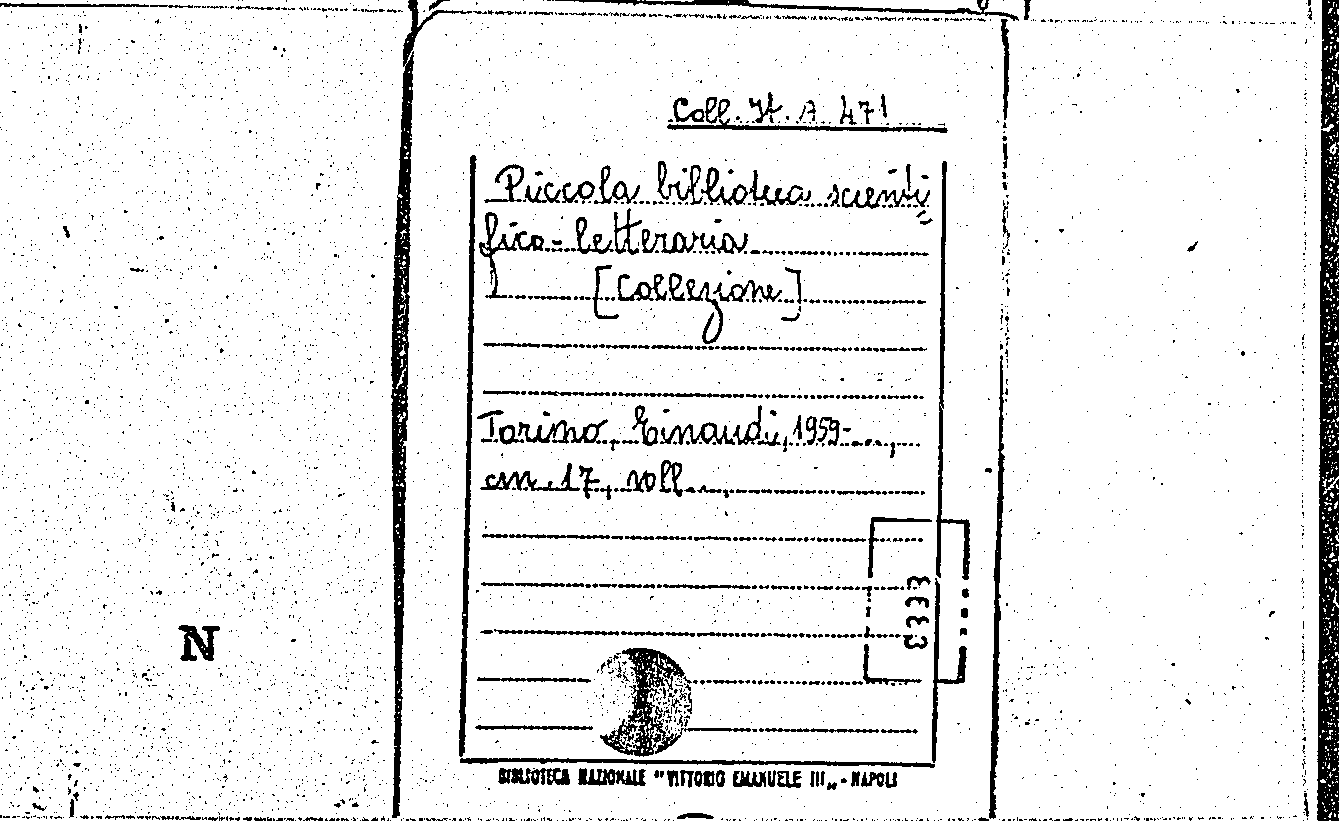 Coll. It. A 471
Piccola biblioteca scienti=
fico-letteraria
[Collezione]
Torino, Einaudi, 1959-...,
cm. 17, voll...,
3333
N
BIBLIOTECA NAZIONALE "VITTORIO EMANUELE III„ - NAPOLI